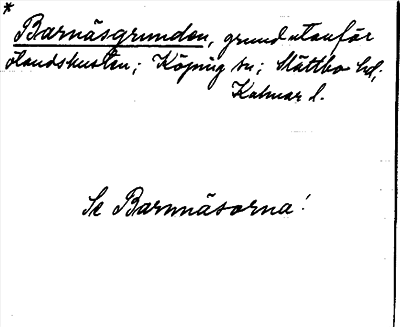 *
Barnäsgrunden, grund utanför
ölandskusten; Köping sn; Slättbo hd;
Kalmar l.
Se Barnnäsorna!